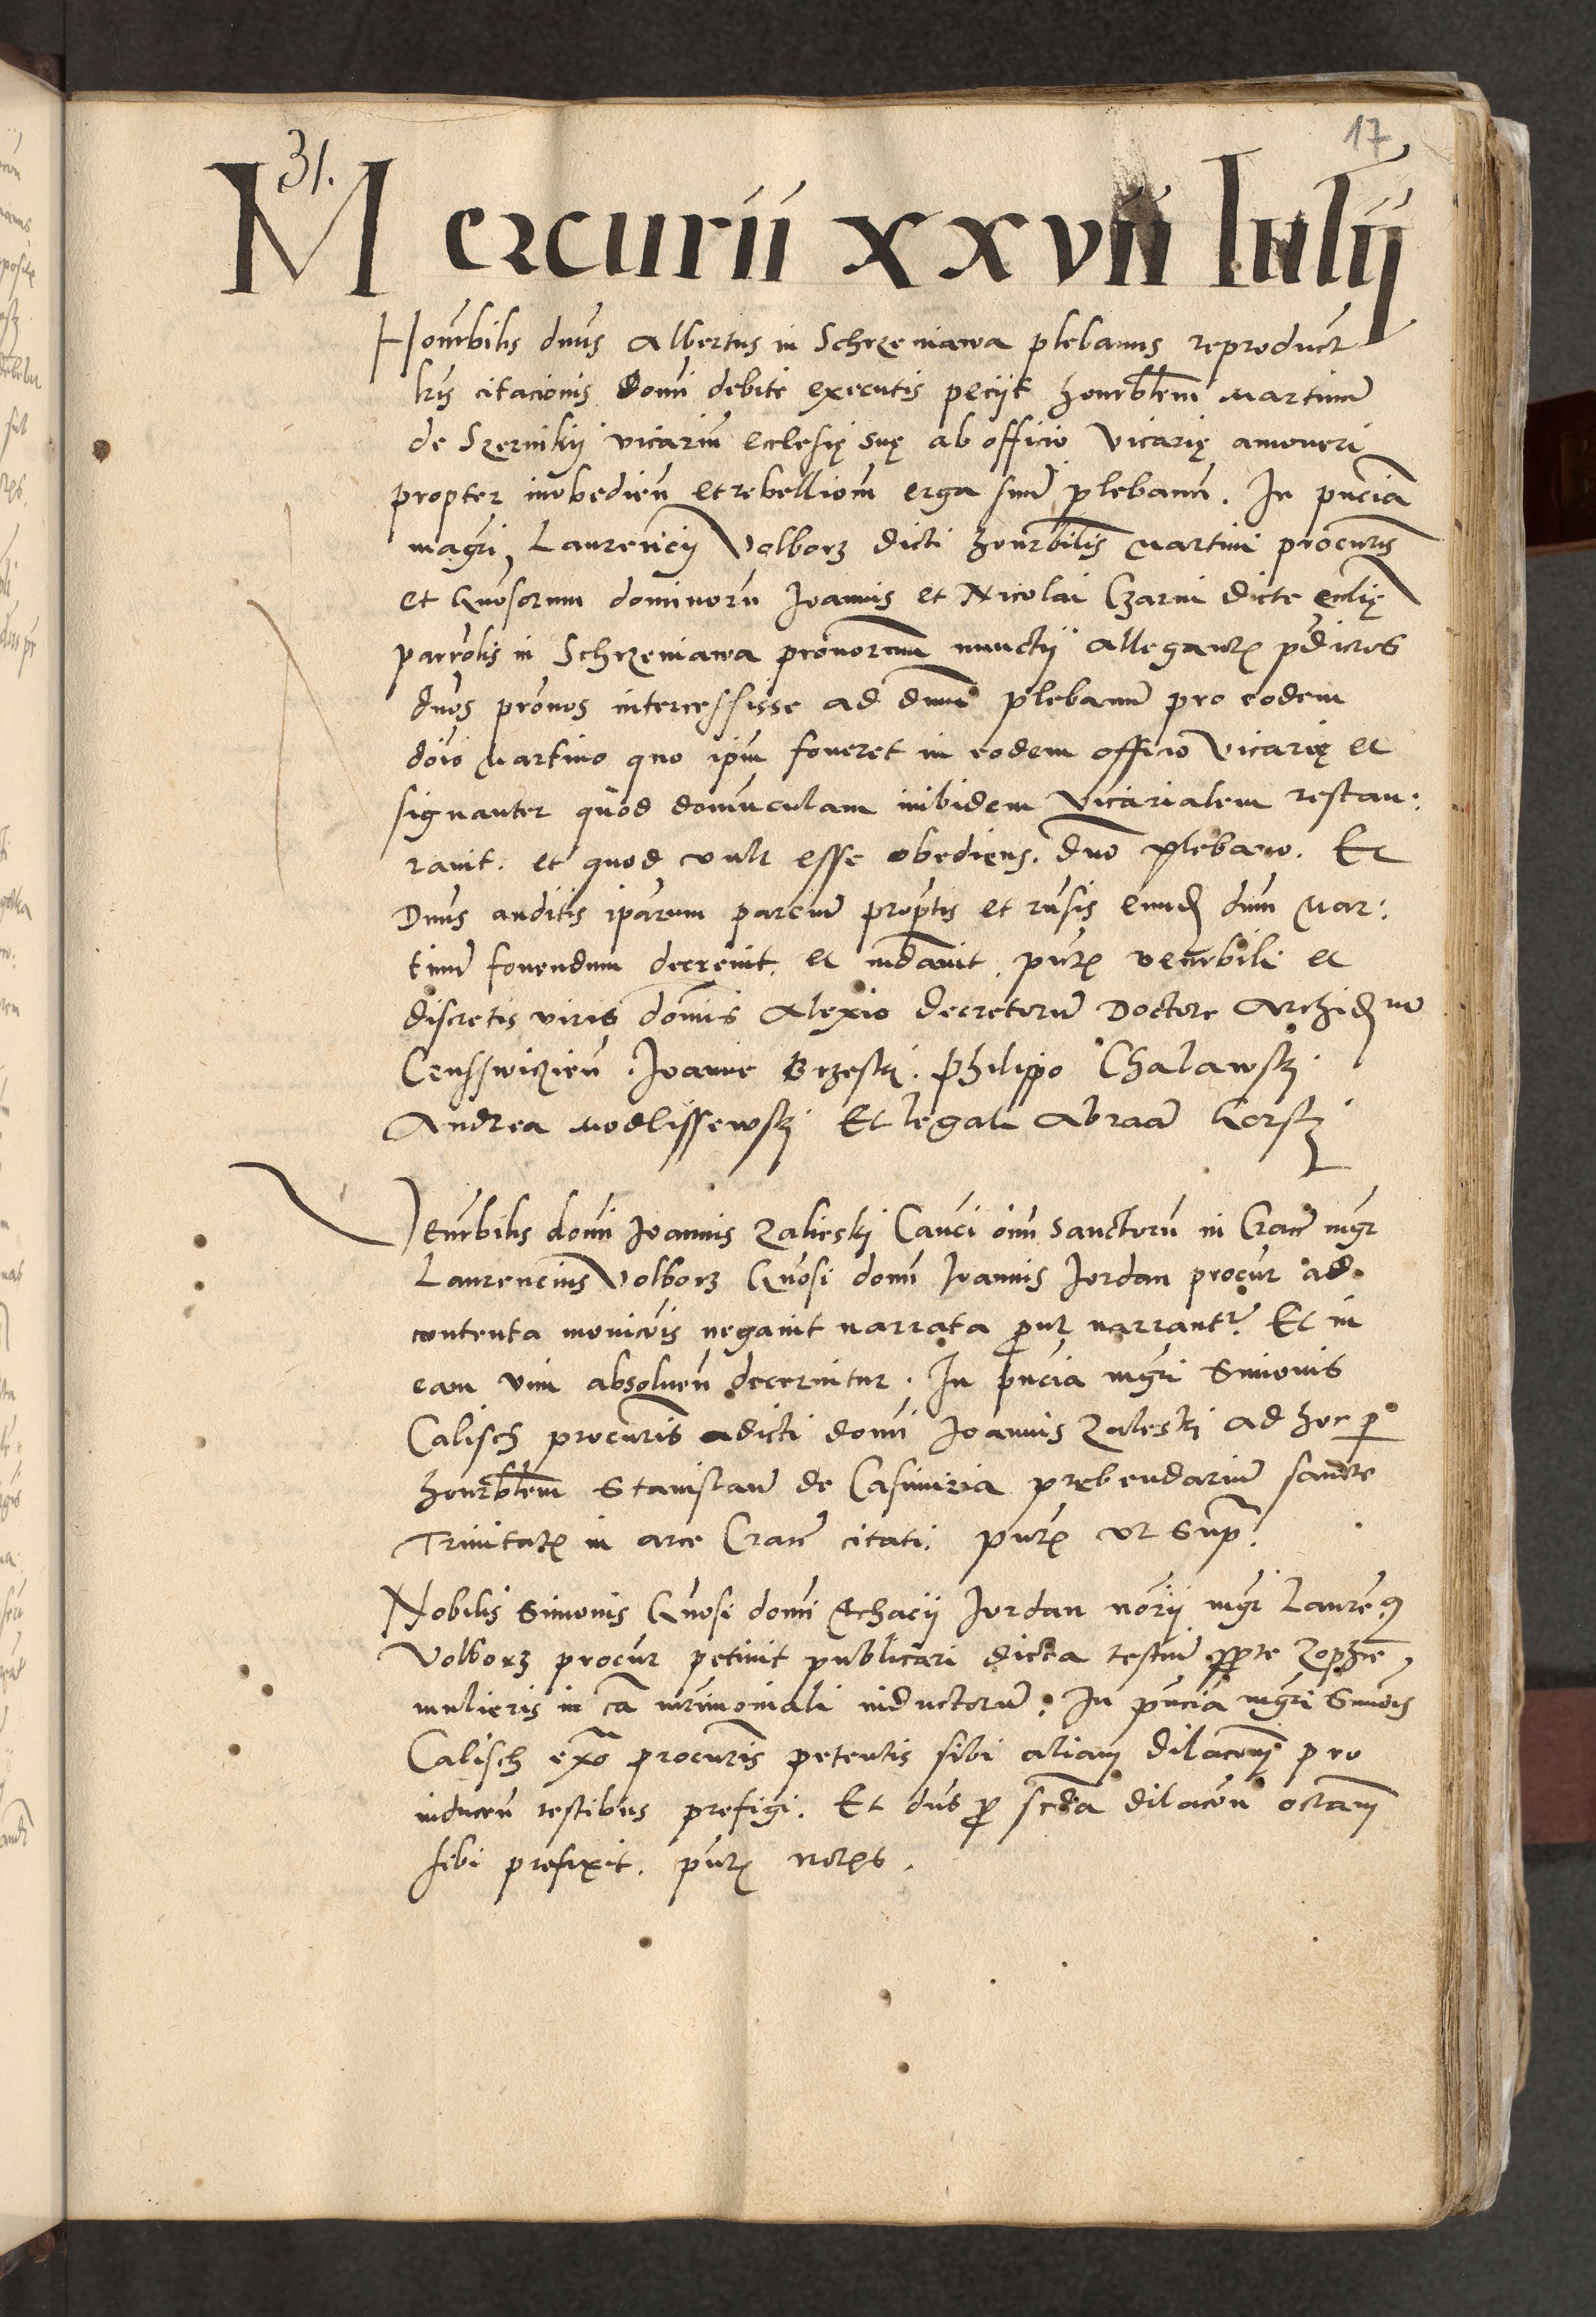 17
31.
Mercurii xxvii Iulij
Honorbilis dnus Albertus in Schrzeniawa plebanus reproduct
lris citacionis domi debite executis peciit honorblem Martinum
de Szernikij vicariu ecclesię suę ab officio vicarię amoveri
propter inobedien et rebelliom erga suum plebanu. In pncia
magri Laurencij Volborz dicti honorbilis Martini procuris
et Gnosorum dominoru Joannis et Nicolai Czarni dicte ecclię
parrolis in Schrzeniawa pronorum nunctij allegantes pdictos
dnos pronos intercessisse ad dnum plebanum pro eodem
dno Martino quo ipm foveret in eodem officio vicarię et
signanter quod domunculam inibidem vicarialem restau:
ravit. et quod vult esse obediens dno plebano. Et
Dnus auditis iparum parcium propositis et rusis eund dnm Mar:
tinum fovendum decrevit et mdavit putz venerbili et
discretis viris domis Alexio decretorum Doctore Archid no
Crusswicien. Joanne Brzeski. Philippo Chalawski
Andrea Modlissewski Et legali Abraam Gorski
Venerbilis domi Joannis Zalieski Canci oim Sanctoru in Crac mgr
Laurencius Volborz Gnosi domi Joannis Jordan procur ad
contenta monicois negavit narrata prout narrantr Et in
eam vim absolven decernitur. In pncia mgri Simonis
Calisch procuris adicti domi Joannis Zaleski ad hoc p
honorblem Stanislaum de Casimiria prebendarium sancte
Trinitatis in arce Crac citati. putz ut supra.
Nobilis Simonis Gnosi domi Achacij Jordan norij mgr Laurens
Volborz procur petivit publicari dicta testium pparte Zophie
mulieris in ca mrimoniali inductorum. In pncia mgri Simois
Calisch exo procuris petentis sibi aliam dilacom pro
inducen testibus prefigi. Et dus p scda dilacon octavam
sibi prefixit. putz notrys.